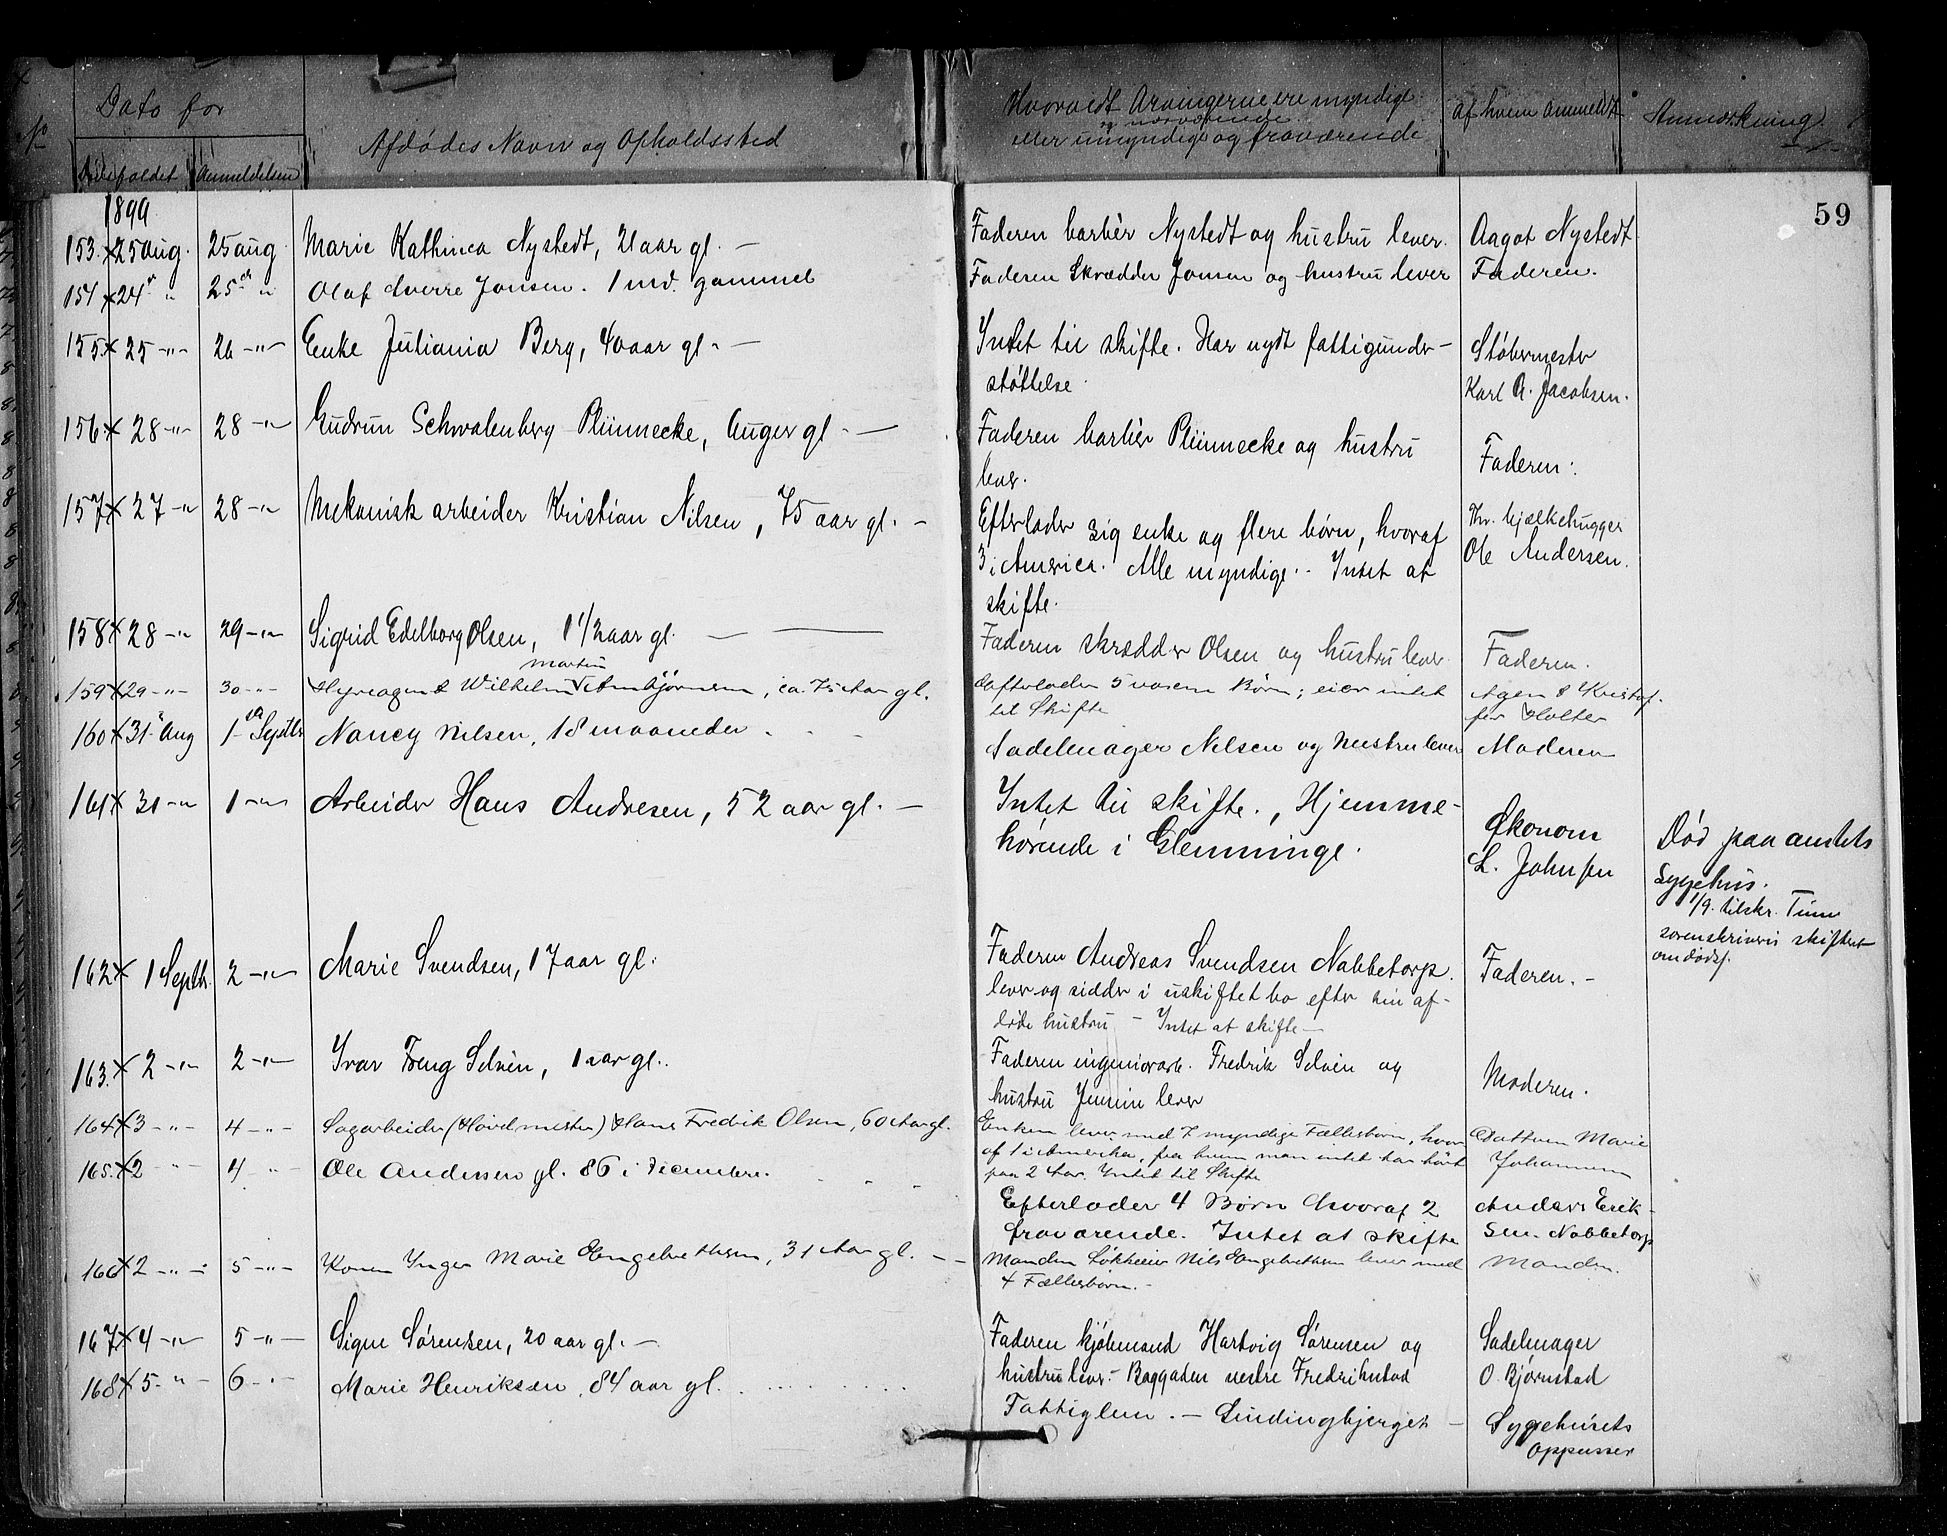 No
Dato for
Dødsfaldet Anmeldelsen
Afdødes Navn og Opholdssted
Hvorvidt Arvingerne ere myndige
og nærværende
eller umyndige og fraværende
Af hvem anmeldt
Anmærkning
59
1899
153. x 25 aug. 25 aug. Marie Kathinca Nystedt, 21 aar gl. — Faderen barbér Nystedt og hustru lever. Aagot Nystedt
154 x 24de " 25de " Olaf Sverre Jonsen. 1 md. gammel Faderen Skrædder Jonsen og hustru lever Faderen.
155. x 25 -"- 26 -"- Enke Juliania Berg, 40 aar gl. — Intet til skifte. Har nydt fattigunder-
støttelse.
Støbermester
Karl A. Jacobsen.
156 x 28 -"- 28 -"- Gudrun Schwalenberg Plünnecke, 6 uger gl. — Faderen barbér Plünnecke og hustru
lever.
Faderen.
157 x 27 -"- 28 -"- Mekanisk arbeider Kristian Nilsen, 75 aar gl. - Efterlader sig enke og flere børn, hvoraf
3 i America. Alle myndige. - Intet at
skifte.
Thv. bjælkehugger
Ole Andersen.
158 x 28 -"- 29 -"- Sigrid Edelborg Olsen, 1 1/2 aar gl. — Faderen skrædder Olsen og hustru lever. Faderen.
159 x 29 -"- 30 -"- Hyreagent Wilhelm Martin Arnbjørnsen, ca. 75 Aar gl. Efterlader 5 voxne Børn; eier intet
til Skifte
Agent Kristof-
fer Holter
160 x 31. Aug 1ste Septbr Nancy Nilsen, 18 maaneder Sadelmager Nilsen og hustru lever Moderen
161 x 31 -"- 1 -"- Arbeider Hans Andresen, 52 aar gl. — Intet til skifte., Hjemme-
hørende i Glemminge.
Økonom
L. Johnsen
Død paa amtets
Sygehus.
1/9. tilskr. Tune
sorenskriveri skifteret
om dødsf.
162 x 1 Septbr. 2 -"- Marie Svendsen, 17 aar gl. Faderen Andreas Svendsen Nabbetorp.
lever og sidder i uskiftet bo efter sin af-
døde hustru — Intet at skifte —
Faderen. -
163. x 2 -"- 2 -"- Ivar Freng Selvén, 1 aar gl. Faderen ingeniørarb. Fredrik Selvén og
hustru Jensine lever
Moderen.
164 x 3 -"- 4 -"- Sagarbeider (Høvlmester) Hans Fredrik Olsen, 60 Aar gl. Enken lever med 7 myndige Fællesbørn, hvor
af 1 i Amerika, fra hvem man intet har hørt
paa 2 Aar. Intet til Skifte
Datteren Marie
Johannesen
165. x 2 -"- 4 -"- Ole Andersen gl. 86 i Decembere. Efterlader 4 Børn hvoraf 2
fraværende. Intet at skifte
Anders Erik-
sen. Nabbetorp
166 x 2 -"- 5 -"- Konen Inger Marie Engebrethsen, 31 Aar gl. — Manden Løkkeeier Nils Engebrethsen lever med
4 Fællesbørn. -
Manden.
167 x 4 -"- 5 -"- Signe Sørensen, 20 aar gl. — Faderen kjøbmand Hartvig Sørensen og
hustru lever. - Baggaden vestre Fredrikstad
Sadelmager
O. Bjørnstad
168 x 5 -"- 6 -"- Marie Henriksen, 84 aar gl. Fattiglem. —
Sygehusets
Oppasser